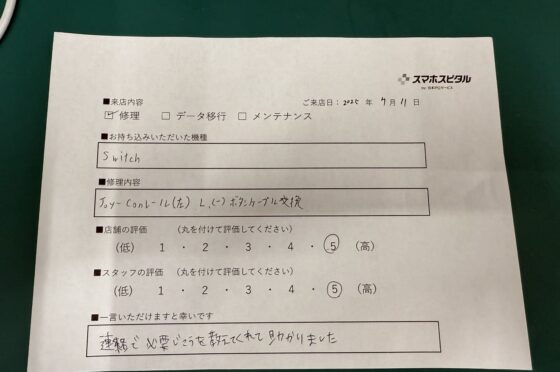 スマホスピタル
■来店内容
ご来店日：2025 年 7月 11 日
☑修理 □ データ移行 □ メンテナンス
■お持ち込みいただいた機種
Switch
■修理内容
Joy-Conレール(左) L、(-)ボタンケーブル交換
■店舗の評価 (丸を付けて評価してください)
(低) 1 ・ 2 ・ 3 ・ 4 ・ 5 (高)
■スタッフの評価 (丸を付けて評価してください)
(低) 1 ・ 2 ・ 3 ・ 4 ・ 5 (高)
■一言いただけますと幸いです
連絡で必要じこうを教えてくれて助かりました